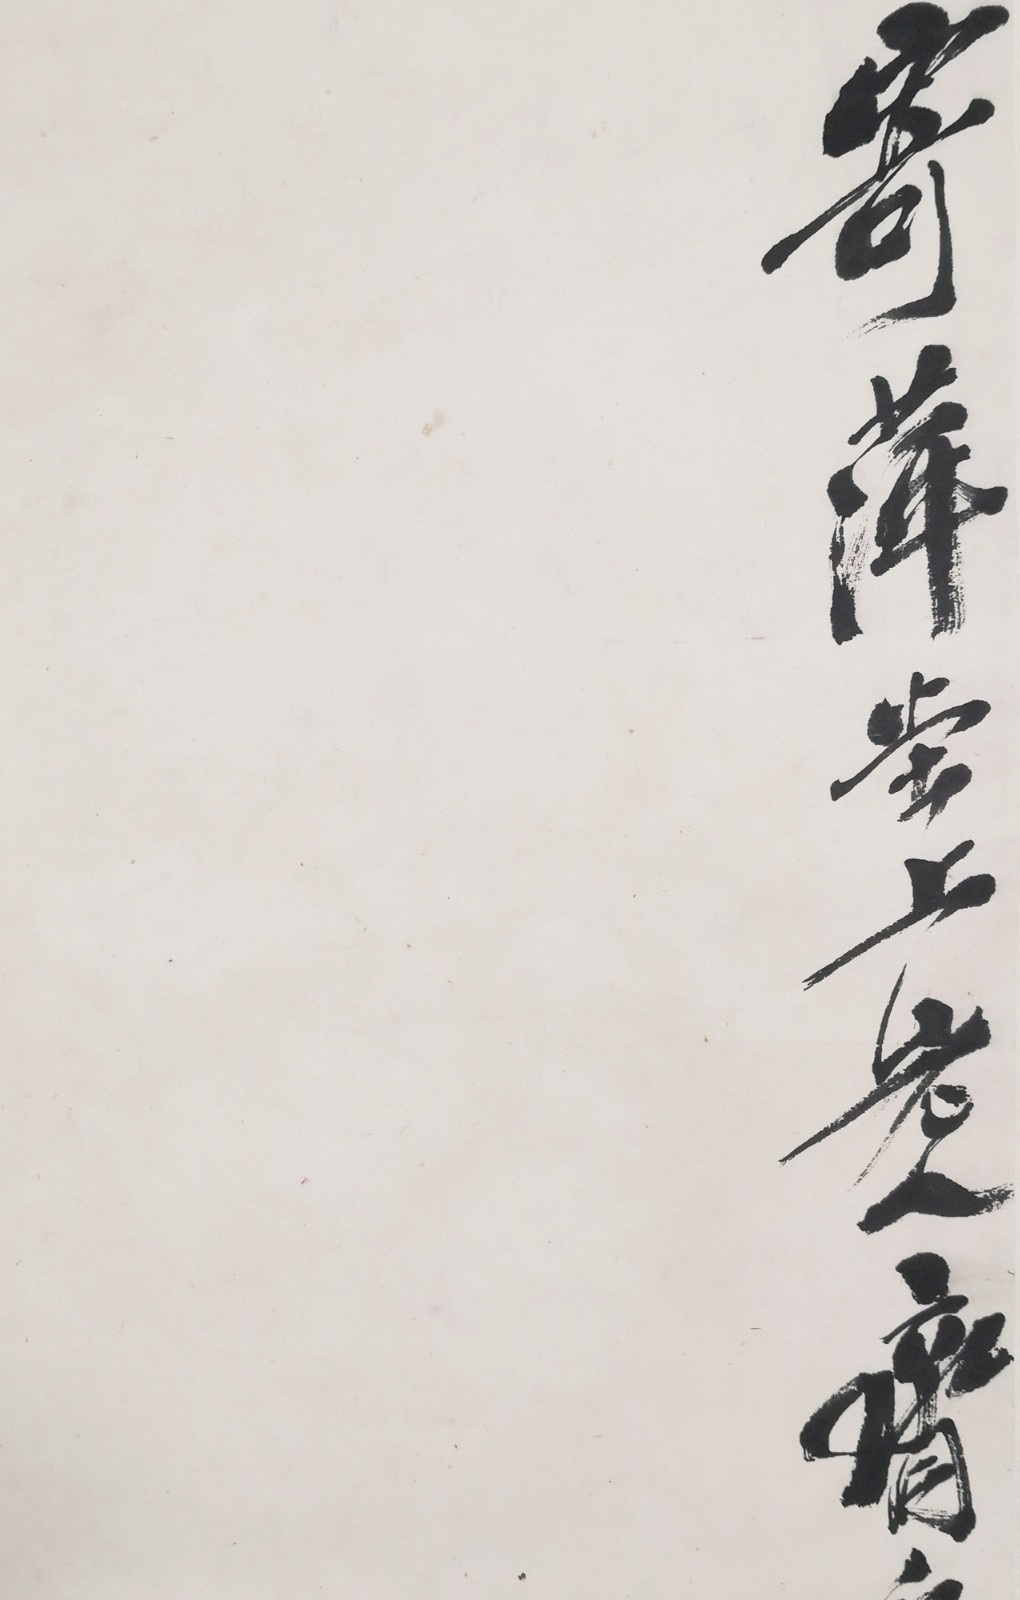 寄萍堂上老人齊